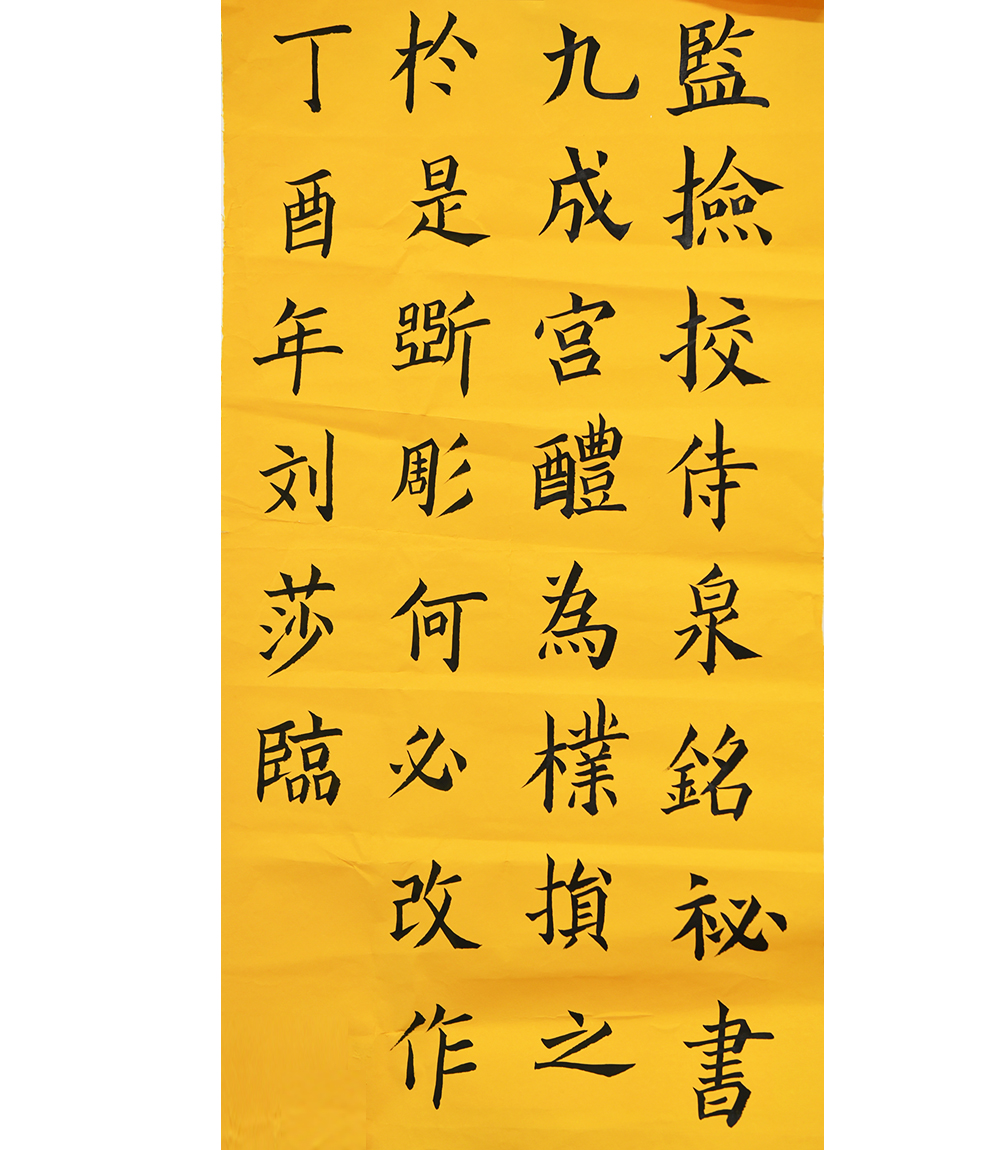 監撿挍侍泉銘祕書
九成宮醴為樸損之
於是斲彫何必改作
丁酉年刘莎臨